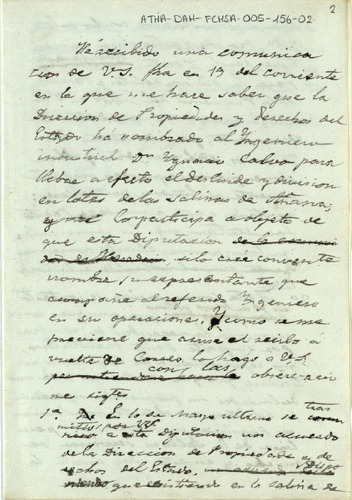 ATHA-DAH-FCHSA-005-156-02
2
He recibido una comunica
cion de V.S. fha en 13 del corriente
en la que me hace saber que la
Direccion de Propiedades y derechos del
Estado ha nombrado al Ingeniero
industrial Dn Ignacio Calvo para
llebar a efecto el deslinde y division
en lotes de las Salinas de Añana;
y me lo participa a objeto de
que esta Diputacion de la
si lo cree convente
nombre un representante que
acompañe al referido Ingeniero
en su operaciones. Y como se me
previene que acuse el recibo a
vuelta de Correo lo hago a V.S.
con las observacio
nes sigtes
1a En 10 de Mayo ultimo se tras
a esta Diputacion un acuerdo
de la Direccion de Propiedades y de
rechos del Estado, dispo
niendo que en la salina de